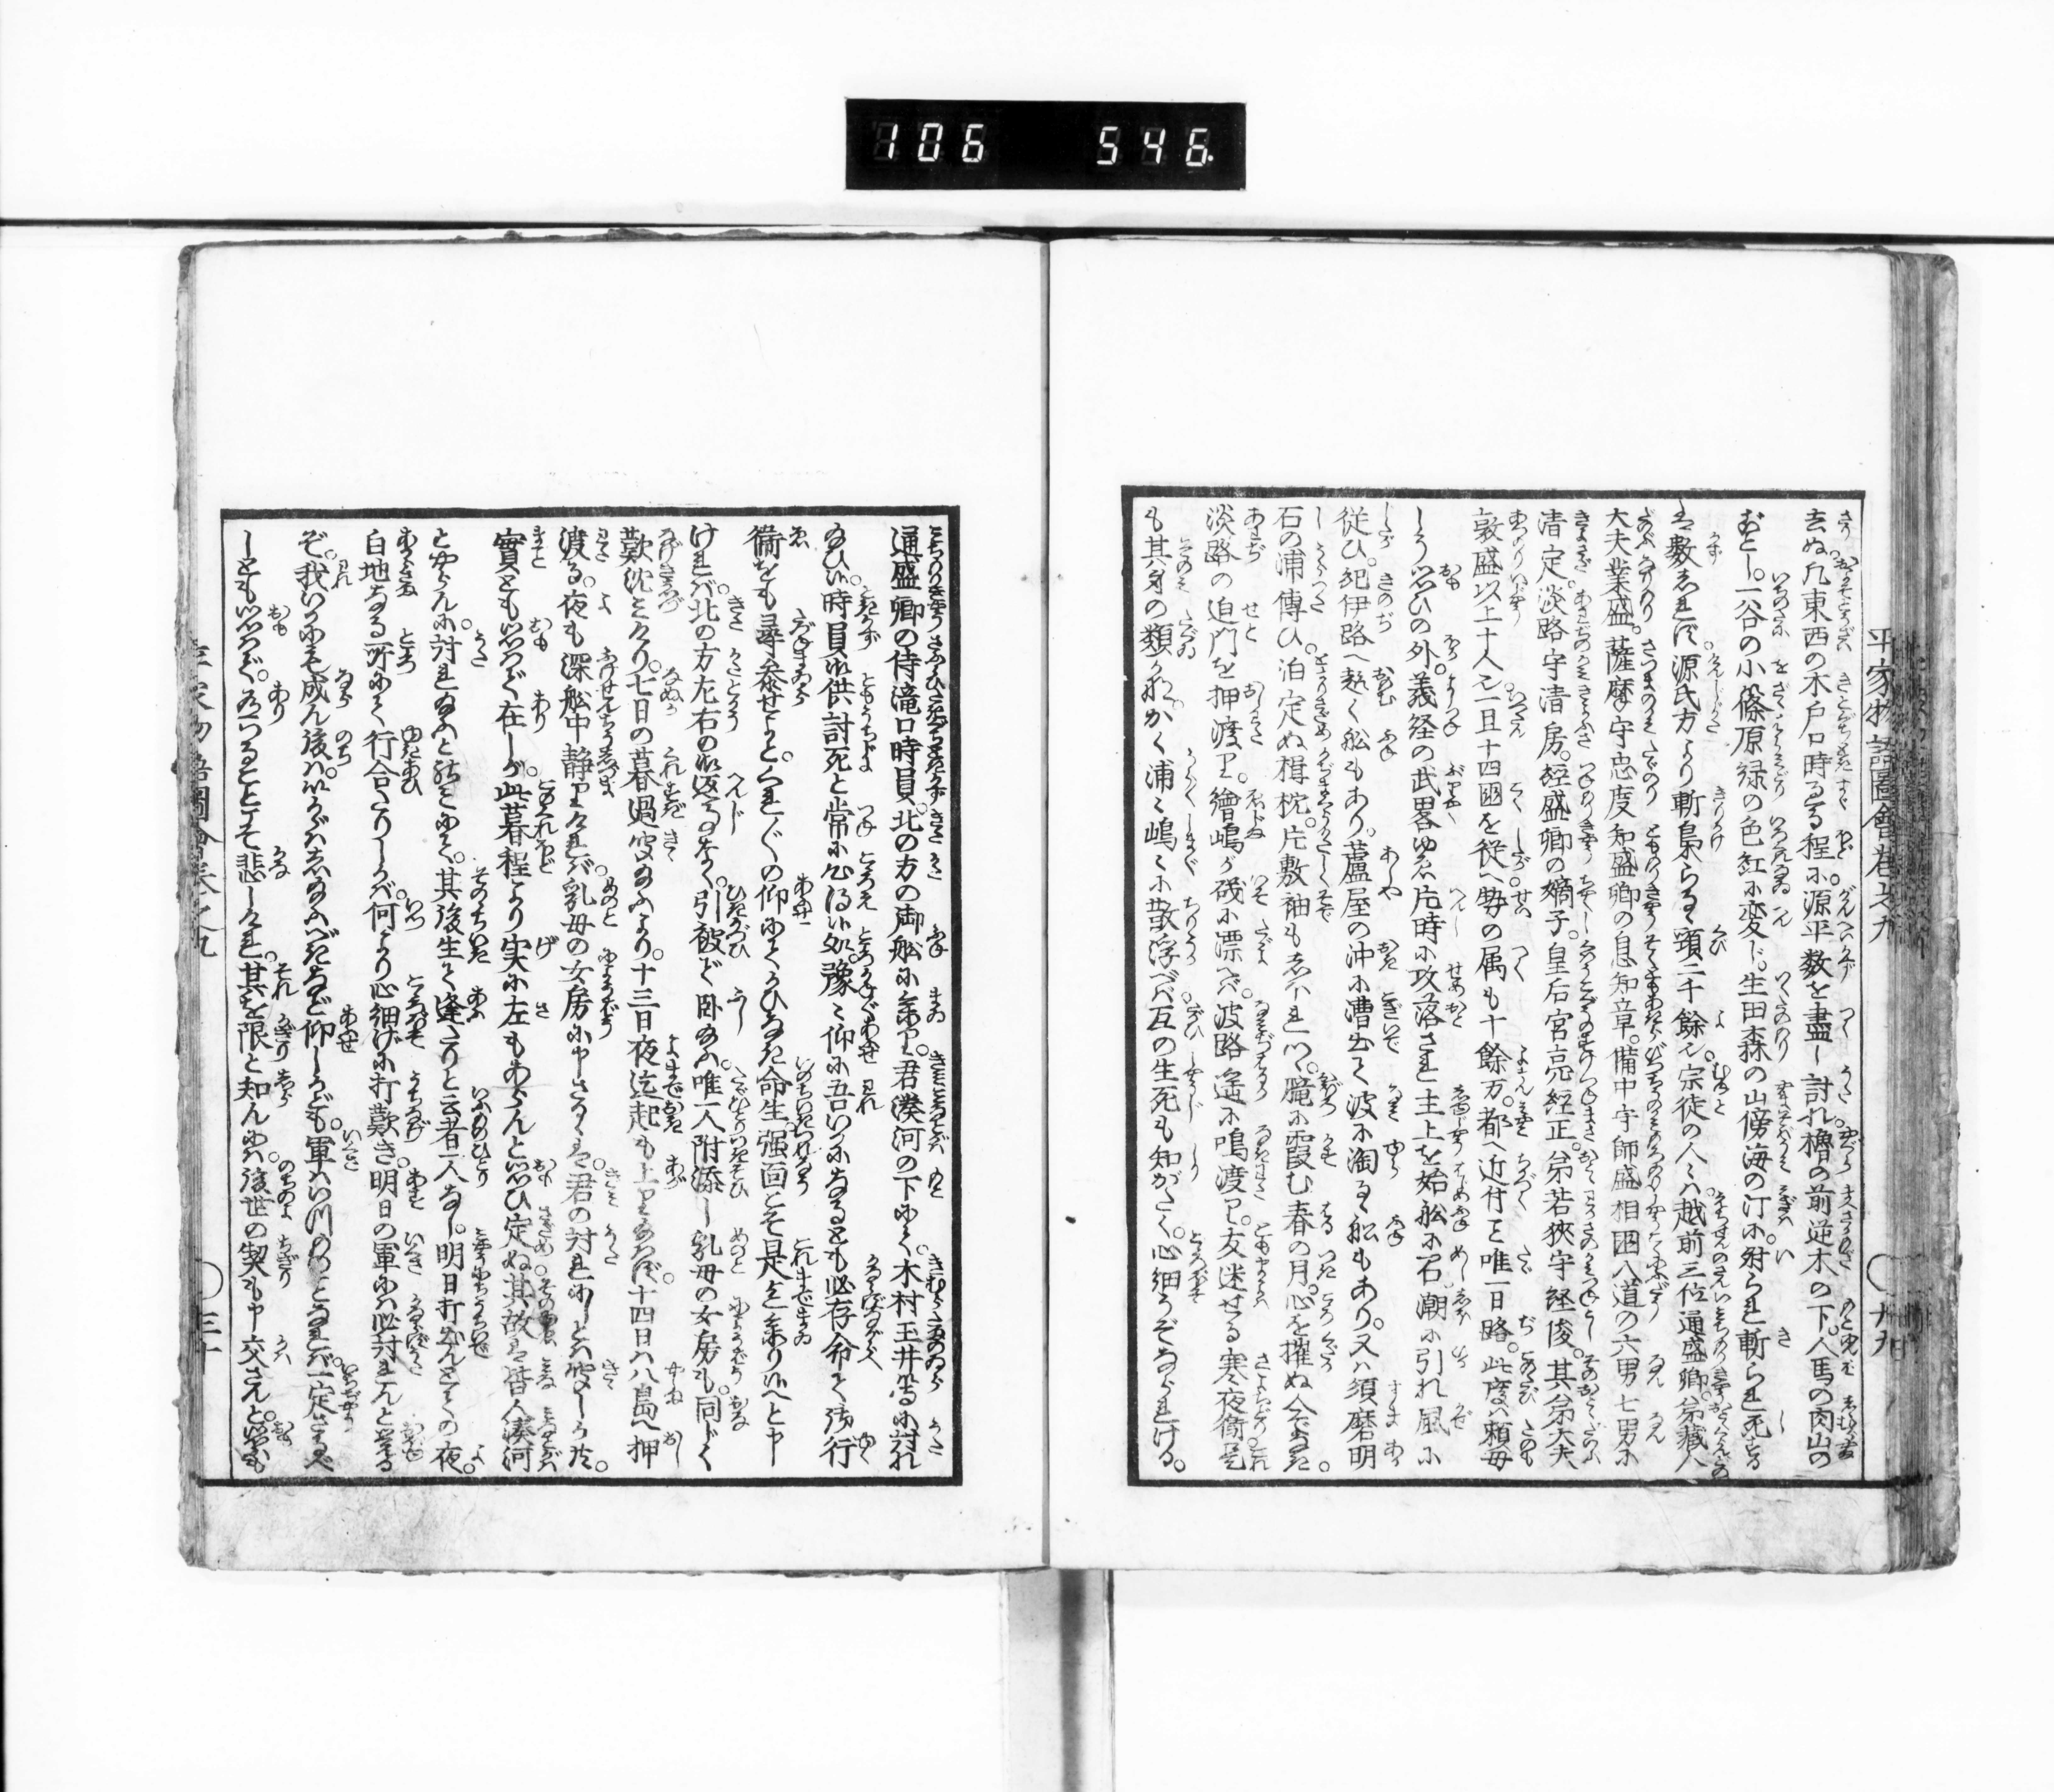 106 546.
平家物語圖會巻之九
廿九
去ぬ。凡東西の木戸口時をうつる程に。源平数を盡し討れ。櫓の前逆木の下。人馬の肉山の
ごとし。一谷の小篠原緑の色紅に変じ。生田森の山傍海の汀に。射られ斬られ死する
は数しれず。源氏方より斬梟らるゝ頸二千餘也。宗徒の人々ハ越前三位通盛卿。弟蔵人
大夫業盛。薩摩守忠度知盛卿の息知章。備中守師盛相國入道の六男七男に
清定。淡路守清房。経盛卿の嫡子。皇后宮亮経正。弟若狭守経俊。其弟大夫
敦盛以上十人也一旦十四國を従へ勢の属も十餘万。都へ近付こと唯一日路。此度ハ頼母
しう思ひの外。義経の武畧ゆゑ片時に攻落され主上を始船に召潮に引れ風に
従ひ。紀伊路へ趣く船もあり。蘆屋の沖に漕出て波に淘るゝ船もあり。又ハ須磨明
石の浦傳ひ。泊定ぬ楫枕。片敷袖もしをれつゝ。朧に霞む春の月。心を摧ぬ人ぞなき。
淡路の迫門を押渡り。繪嶋が磯に漂へバ。波路遙に鳴渡り。友迷せる寒夜衛是
も其身の類かな。かく浦々嶋々に散浮べバ互の生死も知がたく。心細うぞなられける。
通盛卿の侍滝口時員。北の方の御船に参り。君湊河の下にて。木村玉井等に討れ
給ひぬ。時員も供討死と常に心得候処。豫々仰に吾いかになるとも必存命て行
衛をも尋参せよと。くれ〴〵の仰にてかひなき命生。強面こそ是迄参り候へと申
けれバ。北の方左右の御返事なく。引被ぎ臥給ふ。唯一人附添し乳母の女房も。同じく
歎沈ミけり。七日の暮過聞給ふより。十三日夜迄起も上り給はず。十四日ハ八島へ押
渡る。夜も深船中静りけれバ。乳母の女房に申さるゝは。君の討れにしとハ聞しか共。
實とも思はで在しが。此暮程より実に左もあらんと思ひ定ぬ其故は皆人湊河
とやらんに討れ給ふと計にて。其後生て逢たりと云者一人なし。明日打出んとての夜。
白地なる所にて行合たりしかバ。何より心細げに打歎き。明日の軍にハ必討れんと覚る
ぞ。我いかにも成ん後ハ。いかがハし給ふべきなど仰しかども。軍ハいつものことなれバ。一定さるべ
しとも思はず。有つることこそ悲しけれ。其を限と知んにハ。後世の契も申交さんと。思ふも
平家物語圖會巻之九
三十